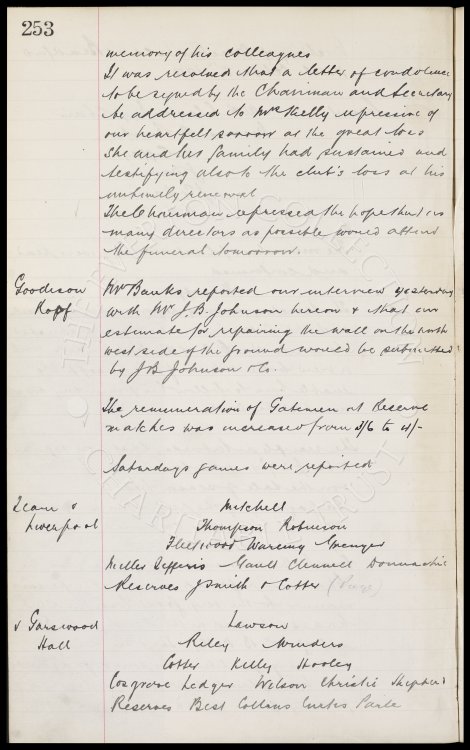 253
memory of his colleagues
It was resolved that a letter of condolence
to be signed by the Chairman and Secretary
be addressed to Mrs Kelly expressive of
our heartfelt sorrow at the great loss
she and her family had sustained and
testifying also to the club's loss at his
untimely removal
The Chairman expressed the hope that as
many directors as possible would attend
the funeral tomorrow.
Goodison
Mr Banks reported our interview yesterday
with Mr J B. Johnson hereon & that an
estimate for repairing the wall on the north
west side of the ground would be submitted
by J B Johnson & Co.
The remuneration of Gatemen at Reserve
matches was increased from 3/6 to 4/-
Saturdays games were reported
Team v
Liverpool
Mitchell
Thompson Robinson
Fleetwood Wareing Grenyer
Miller Jefferis Gault Clennell Donnachie
Reserves J Smith & Cotter
v Garswood
Hall
Lawson
Riley Winders
Cotter Kelley Hooley
Cosgrove Ledger Wilson Christie Shepherd
Reserves Best Collins Curtis Parle
THE EVERTON COLLECTION
CHARITABLE TRUST